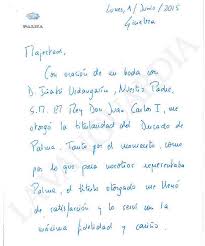 PALMA
Lunes, 1/Junio/2015
Ginebra
Majestad,
Con ocasión de mi boda con
D. Iñaki Urdangarin, Nuestro Padre,
S.M. El Rey Don Juan Carlos I, me
otorgó la titularidad del Ducado de
Palma. Tanto por el momento como
por lo que para nosotros representaba
Palma, el título otorgado me llenó
de satisfacción y lo serví con la
máxima fidelidad y cariño.